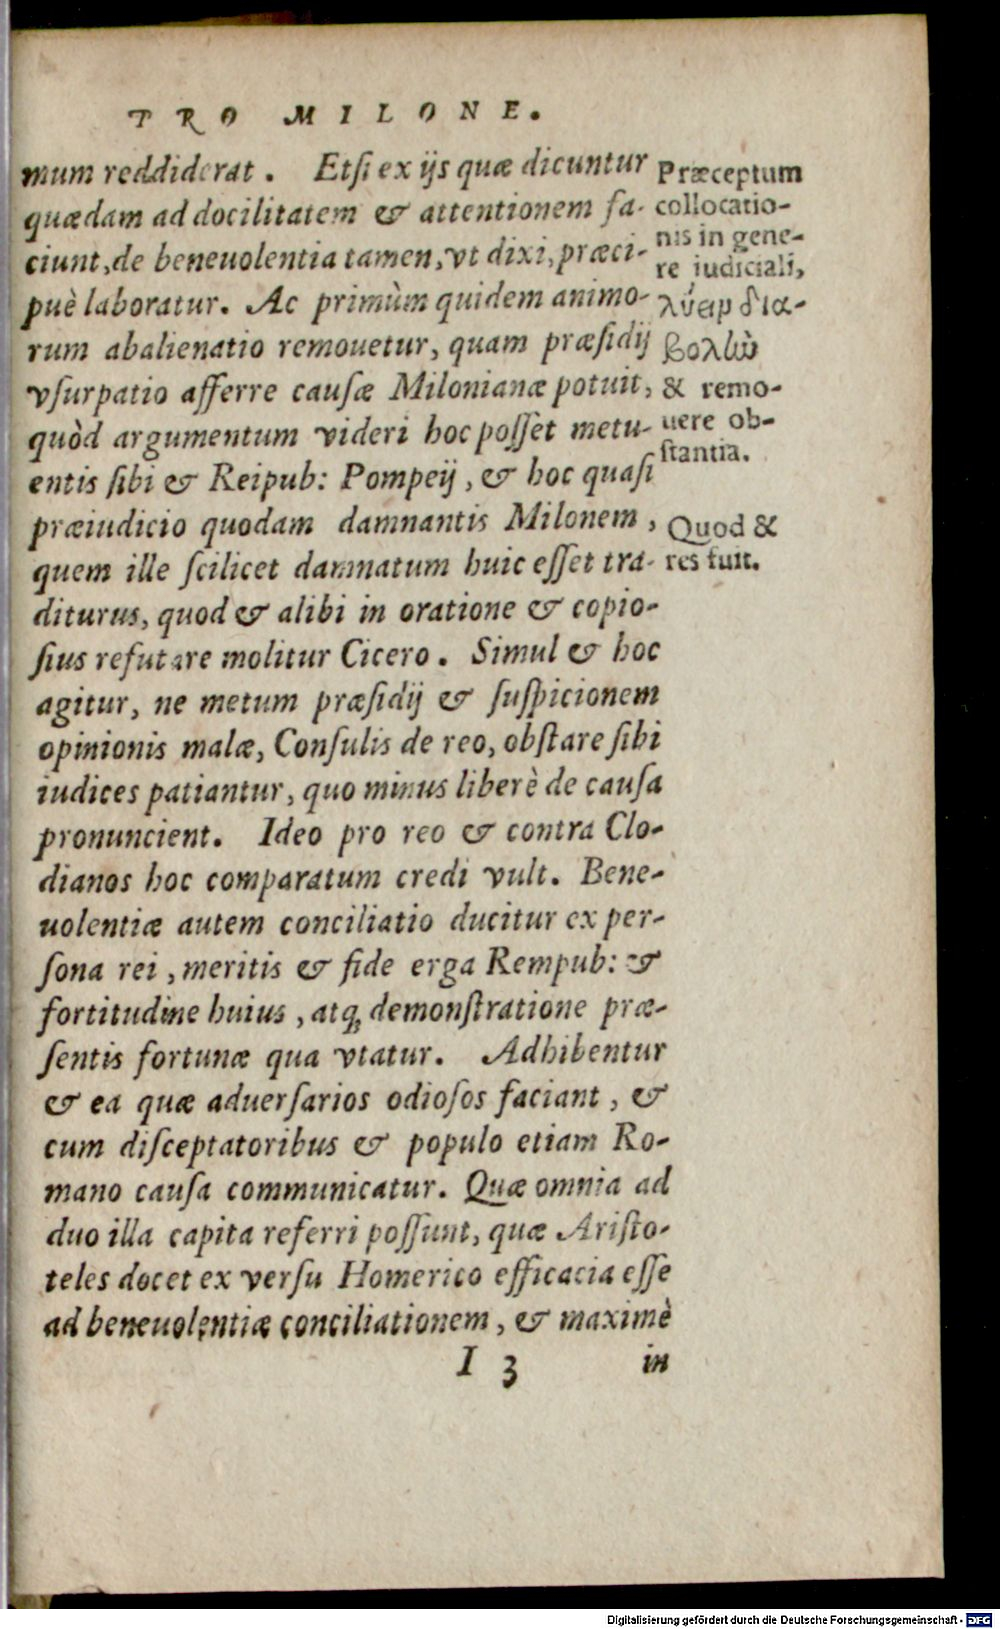 PRO MILONE.
mum reddiderat. Etſi ex ijs quæ dicuntur
quædam ad docilitatem & attentionem fa-
ciunt, de beneuolentia tamen, vt dixi, præci-
puè laboratur. Ac primùm quidem animo-
rum abalienatio remouetur, quam præſidij
vſurpatio afferre cauſæ Milonianæ potuit,
quòd argumentum videri hoc poſſet metu-
entis ſibi & Reipub: Pompeij, & hoc quaſi
præiudicio quodam damnantis Milonem,
quem ille ſcilicet damnatum huic eſſet tra-
diturus, quod & alibi in oratione & copio-
ſius refutare molitur Cicero. Simul & hoc
agitur, ne metum præſidij & ſuſpicionem
opinionis malæ, Conſulis de reo, obſtare ſibi
iudices patiantur, quo minus liberè de cauſa
pronuncient. Ideo pro reo & contra Clo-
dianos hoc comparatum credi vult. Bene-
uolentiæ autem conciliatio ducitur ex per-
ſona rei, meritis & fide erga Rempub: &
fortitudine huius, atq; demonſtratione præ-
ſentis fortunæ qua vtatur. Adhibentur
& ea quæ aduerſarios odioſos faciant, &
cum diſceptatoribus & populo etiam Ro-
mano cauſa communicatur. Quæ omnia ad
duo illa capita referri poſſunt, quæ Ariſto-
teles docet ex verſu Homerico efficacia eſſe
ad beneuolentiæ conciliationem, & maximè
I 3 in
Præceptum
collocatio-
nis in gene-
re iudiciali,
λύειν δια-
βολὼ
& remo-
uere ob-
ſtantia.
Quod &
res fuit.
Digitalisierung gefördert durch die Deutsche Forschungsgemeinschaft - DFG